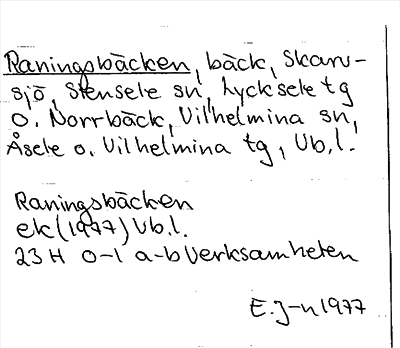 Raningsbäcken, bäck, Skarv-
sjö, Stensele sn, Lycksele tg
o. Norrbäck, Vilhelmina sn,
Åsele o. Vilhelmina tg, Vb.l.
Raningsbäcken
ek (1977) Vb.l.
23 H 0-1 a-b Verksamheten
E. J-n 1977